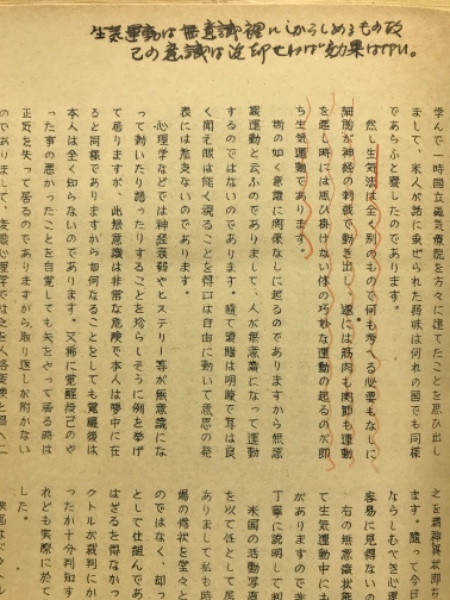 生気運動は無意識裡にしからしめるもの故
己の意識は没却せねば効果はない。
学んで一時国立磁気療院を方々に建てたことを思ひ出し
まして、米人が話に乗ぜられた興味は何れの国でも同様
であらふと憂したのであります。
然し生気法は全く別のもので何も考へる必要もなしに
細胞が神経の刺戟で動き出し、遂には筋肉も関節も運動
を起し時には思ひ掛けない体の巧妙な運動の起るのが即
ち生気運動であります。
斯の如く意識に関係なしに起るのでありますから無意
識運動と云ふのでありまして、人が無意識になって運動
するのではないのであります。随て頭脳は明瞭で耳は良
く聞え眼は能く視ることを得口は自由に動いて意思の発
表には差支ないのであります。
心理学などでは神経衰弱やヒステリー等が無意識にな
って動いたり踊ったりすることを珍らしそうに例を挙げ
て居りますが、此無意識は非常な危険で本人は夢中に在
ると同様でありますから如何なることをしても覚醒後は
本人は全く知らないのであります。又稀に覚醒後己のや
った事の悪かったことを自覚しても夫をやって居る時は
正気を失って居るのでありますから取り返しが附かない
のでありまして、変態心理学では之を人格変換と唱へ
之を精神異状即ち
ます。随って今日
ならしむべき心理
容易に見得ないの
右の無意識状態
て生気運動中にも
がありますので
丁寧に説明して
米国の活動写真
を以て任として居
ありまして私も時
場の惨状を堂々と
のではなく、却っ
として仕組んであ
はざるを得なかっ
クトルが裁判にか
ったか十分判知す
れども実際に於て
した。